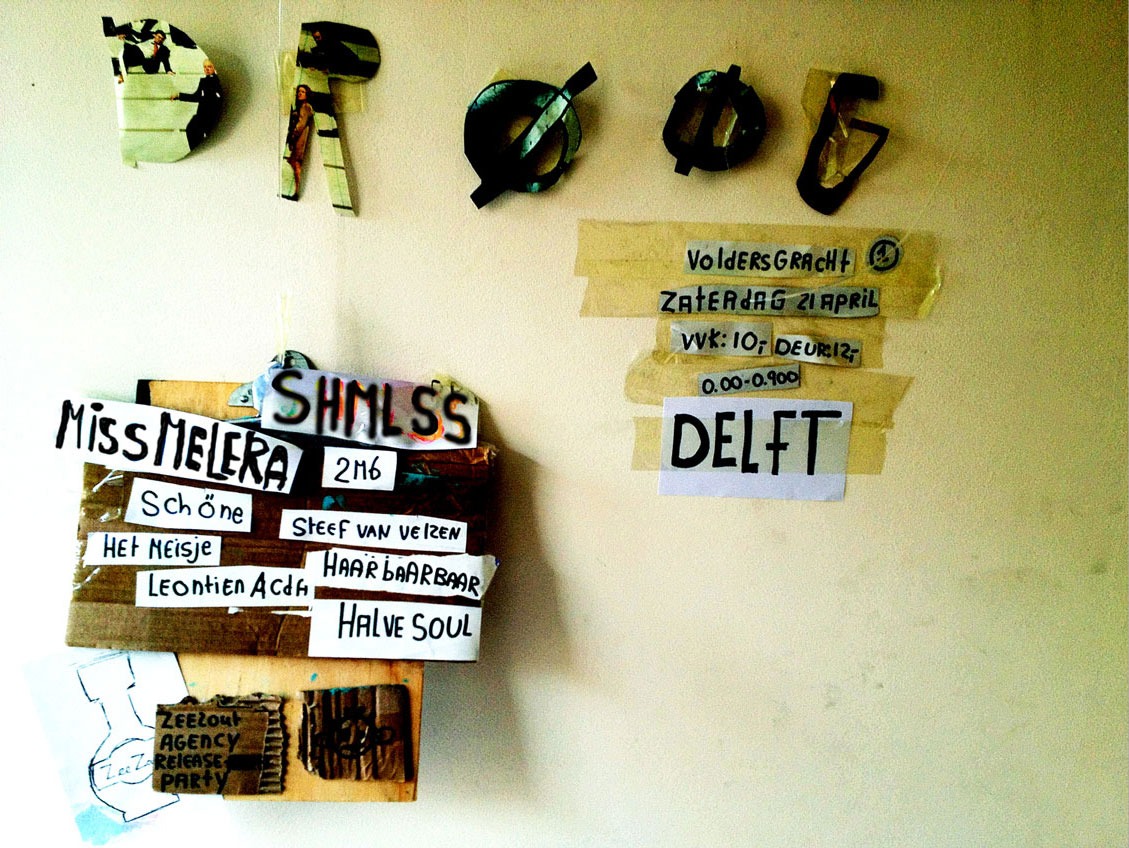 DRØØG
VOLDERSGRACHT
ZATERDAG 21 APRIL
VVK: 10,- DEUR: 12,-
0.00-0.900
DELFT
SHMLSS
MISS MELERA
2M6
SCHÖNE
STEEF VAN VELZEN
HET MEISJE
HAARBAARBAAR
LEONTIEN ACDA
HALVE SOUL
ZEEZOUT
AGENCY
RELEASE
PARTY